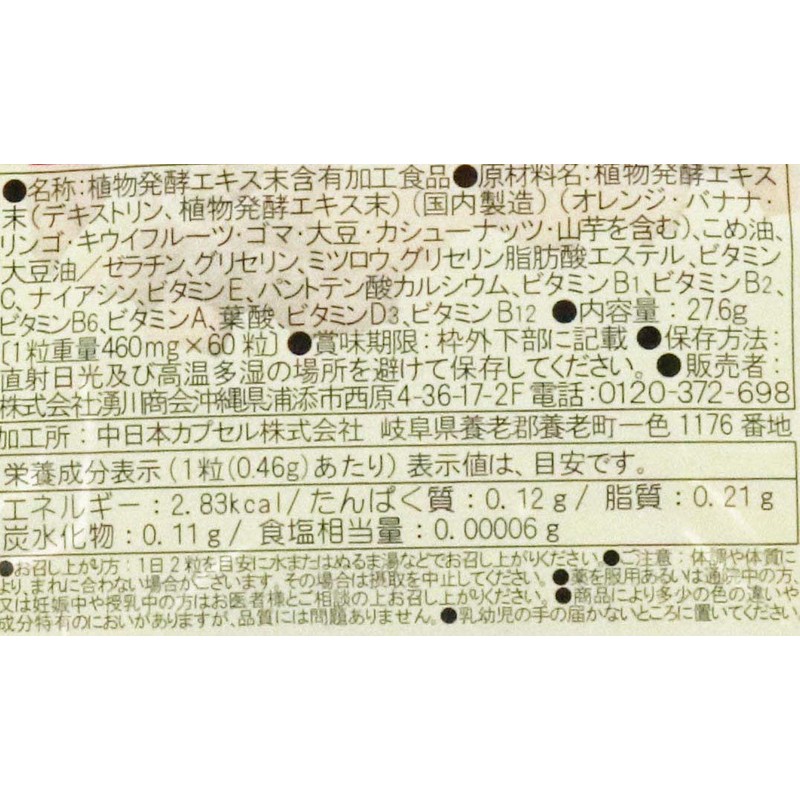 ●名称:植物発酵エキス末含有加工食品●原材料名:植物発酵エキス
末(デキストリン、植物発酵エキス末)(国内製造)(オレンジ・バナナ・
リンゴ・キウイフルーツ・ゴマ・大豆・カシューナッツ・山芋を含む)、こめ油、
大豆油/ゼラチン、グリセリン、ミツロウ、グリセリン脂肪酸エステル、ビタミン
C、ナイアシン、ビタミンE、パントテン酸カルシウム、ビタミンB1、ビタミンB2、
ビタミンB6、ビタミンA、葉酸、ビタミンD3、ビタミンB12 ●内容量:27.6g
〔1粒重量460mg×60粒〕●賞味期限:枠外下部に記載●保存方法:
直射日光及び高温多湿の場所を避けて保存してください。●販売者:
株式会社湧川商会沖縄県浦添市西原4-36-17-2F電話:0120-372-698
加工所:中日本カプセル株式会社 岐阜県養老郡養老町一色1176番地
栄養成分表示(1粒(0.46g)あたり)表示値は、目安です。
エネルギー:2.83kcal/たんぱく質:0.12g/脂質:0.21g
炭水化物:0.11g/食塩相当量:0.00006g
●お召し上がり方:1日2粒を目安に水またはぬるま湯などでお召し上がりください。●ご注意:体調や体質に
より、まれに合わない場合がございます。その場合は摂取を中止してください。●薬を服用あるいは通院中の方、
又は妊娠中や授乳中の方はお医者様とご相談の上お召し上がりください。●商品により多少の色の違いや
成分特有のにおいがありますが、品質には問題ありません。●乳幼児の手の届かないところに置いてください